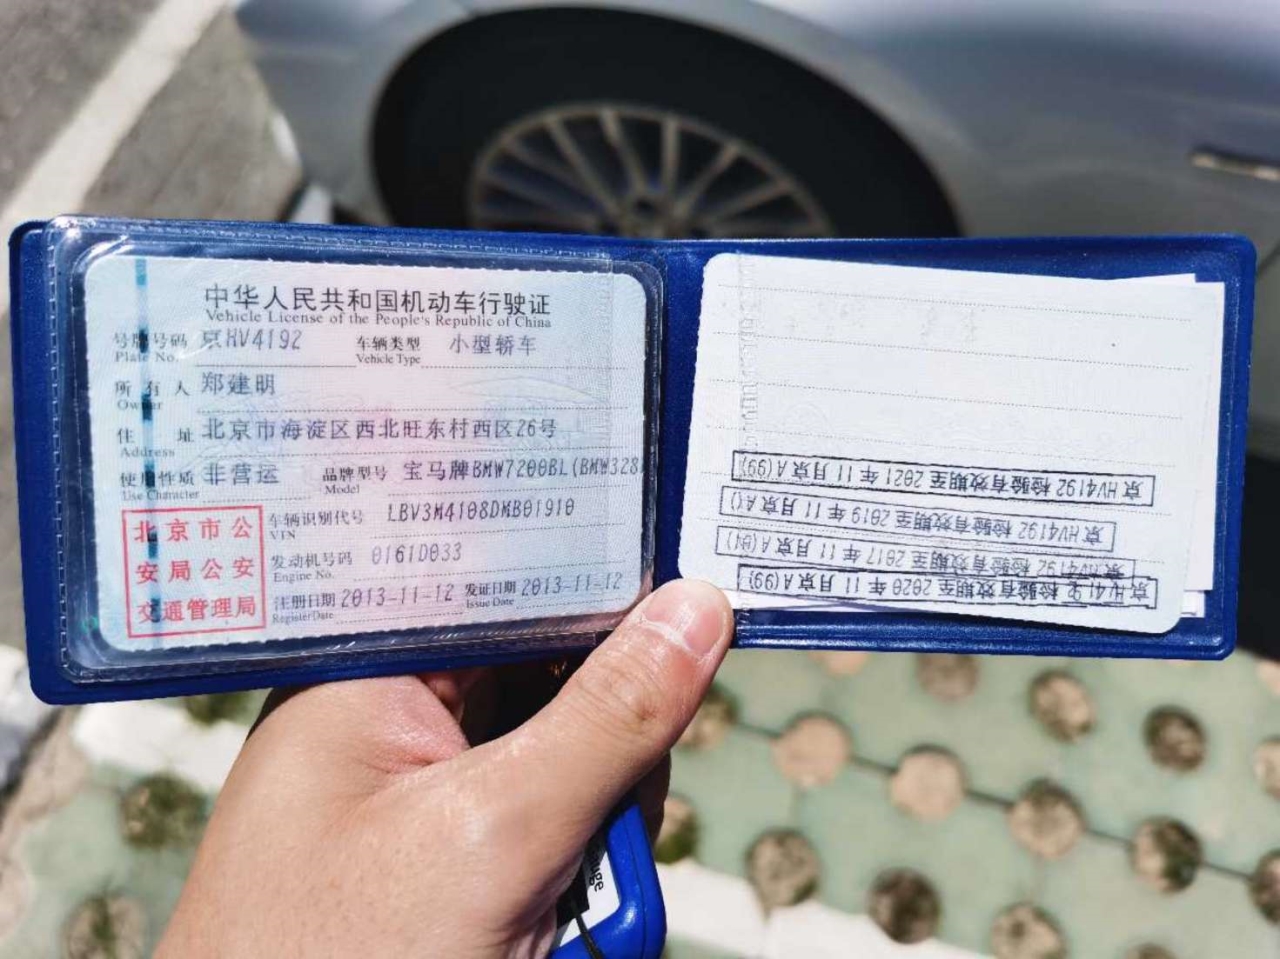 中华人民共和国机动车行驶证
Vehicle License of the People's Republic of China
号牌号码 京HV4192 车辆类型 小型轿车
Plate No. Vehicle Type
所有人 郑建明
Owner
住址 北京市海淀区西北旺东村西区26号
Address
使用性质 非营运 品牌型号 宝马牌BMW7200BL(BMW328
Use Character Model
北京市公
安局公安
交通管理局
车辆识别代号 LBV3M4108DMB01910
VIN
发动机号码 0161D033
Engine No.
注册日期 2013-11-12 发证日期 2013-11-12
Register Date Issue Date
京HV4192 检验有效期至 2021 年 11 月京A(99)
京HV4192 检验有效期至 2019 年 11 月京A(1)
京HV4192 检验有效期至 2017 年 11 月京A(04)
京HV4192 检验有效期至 2020 年 11 月京A(99)